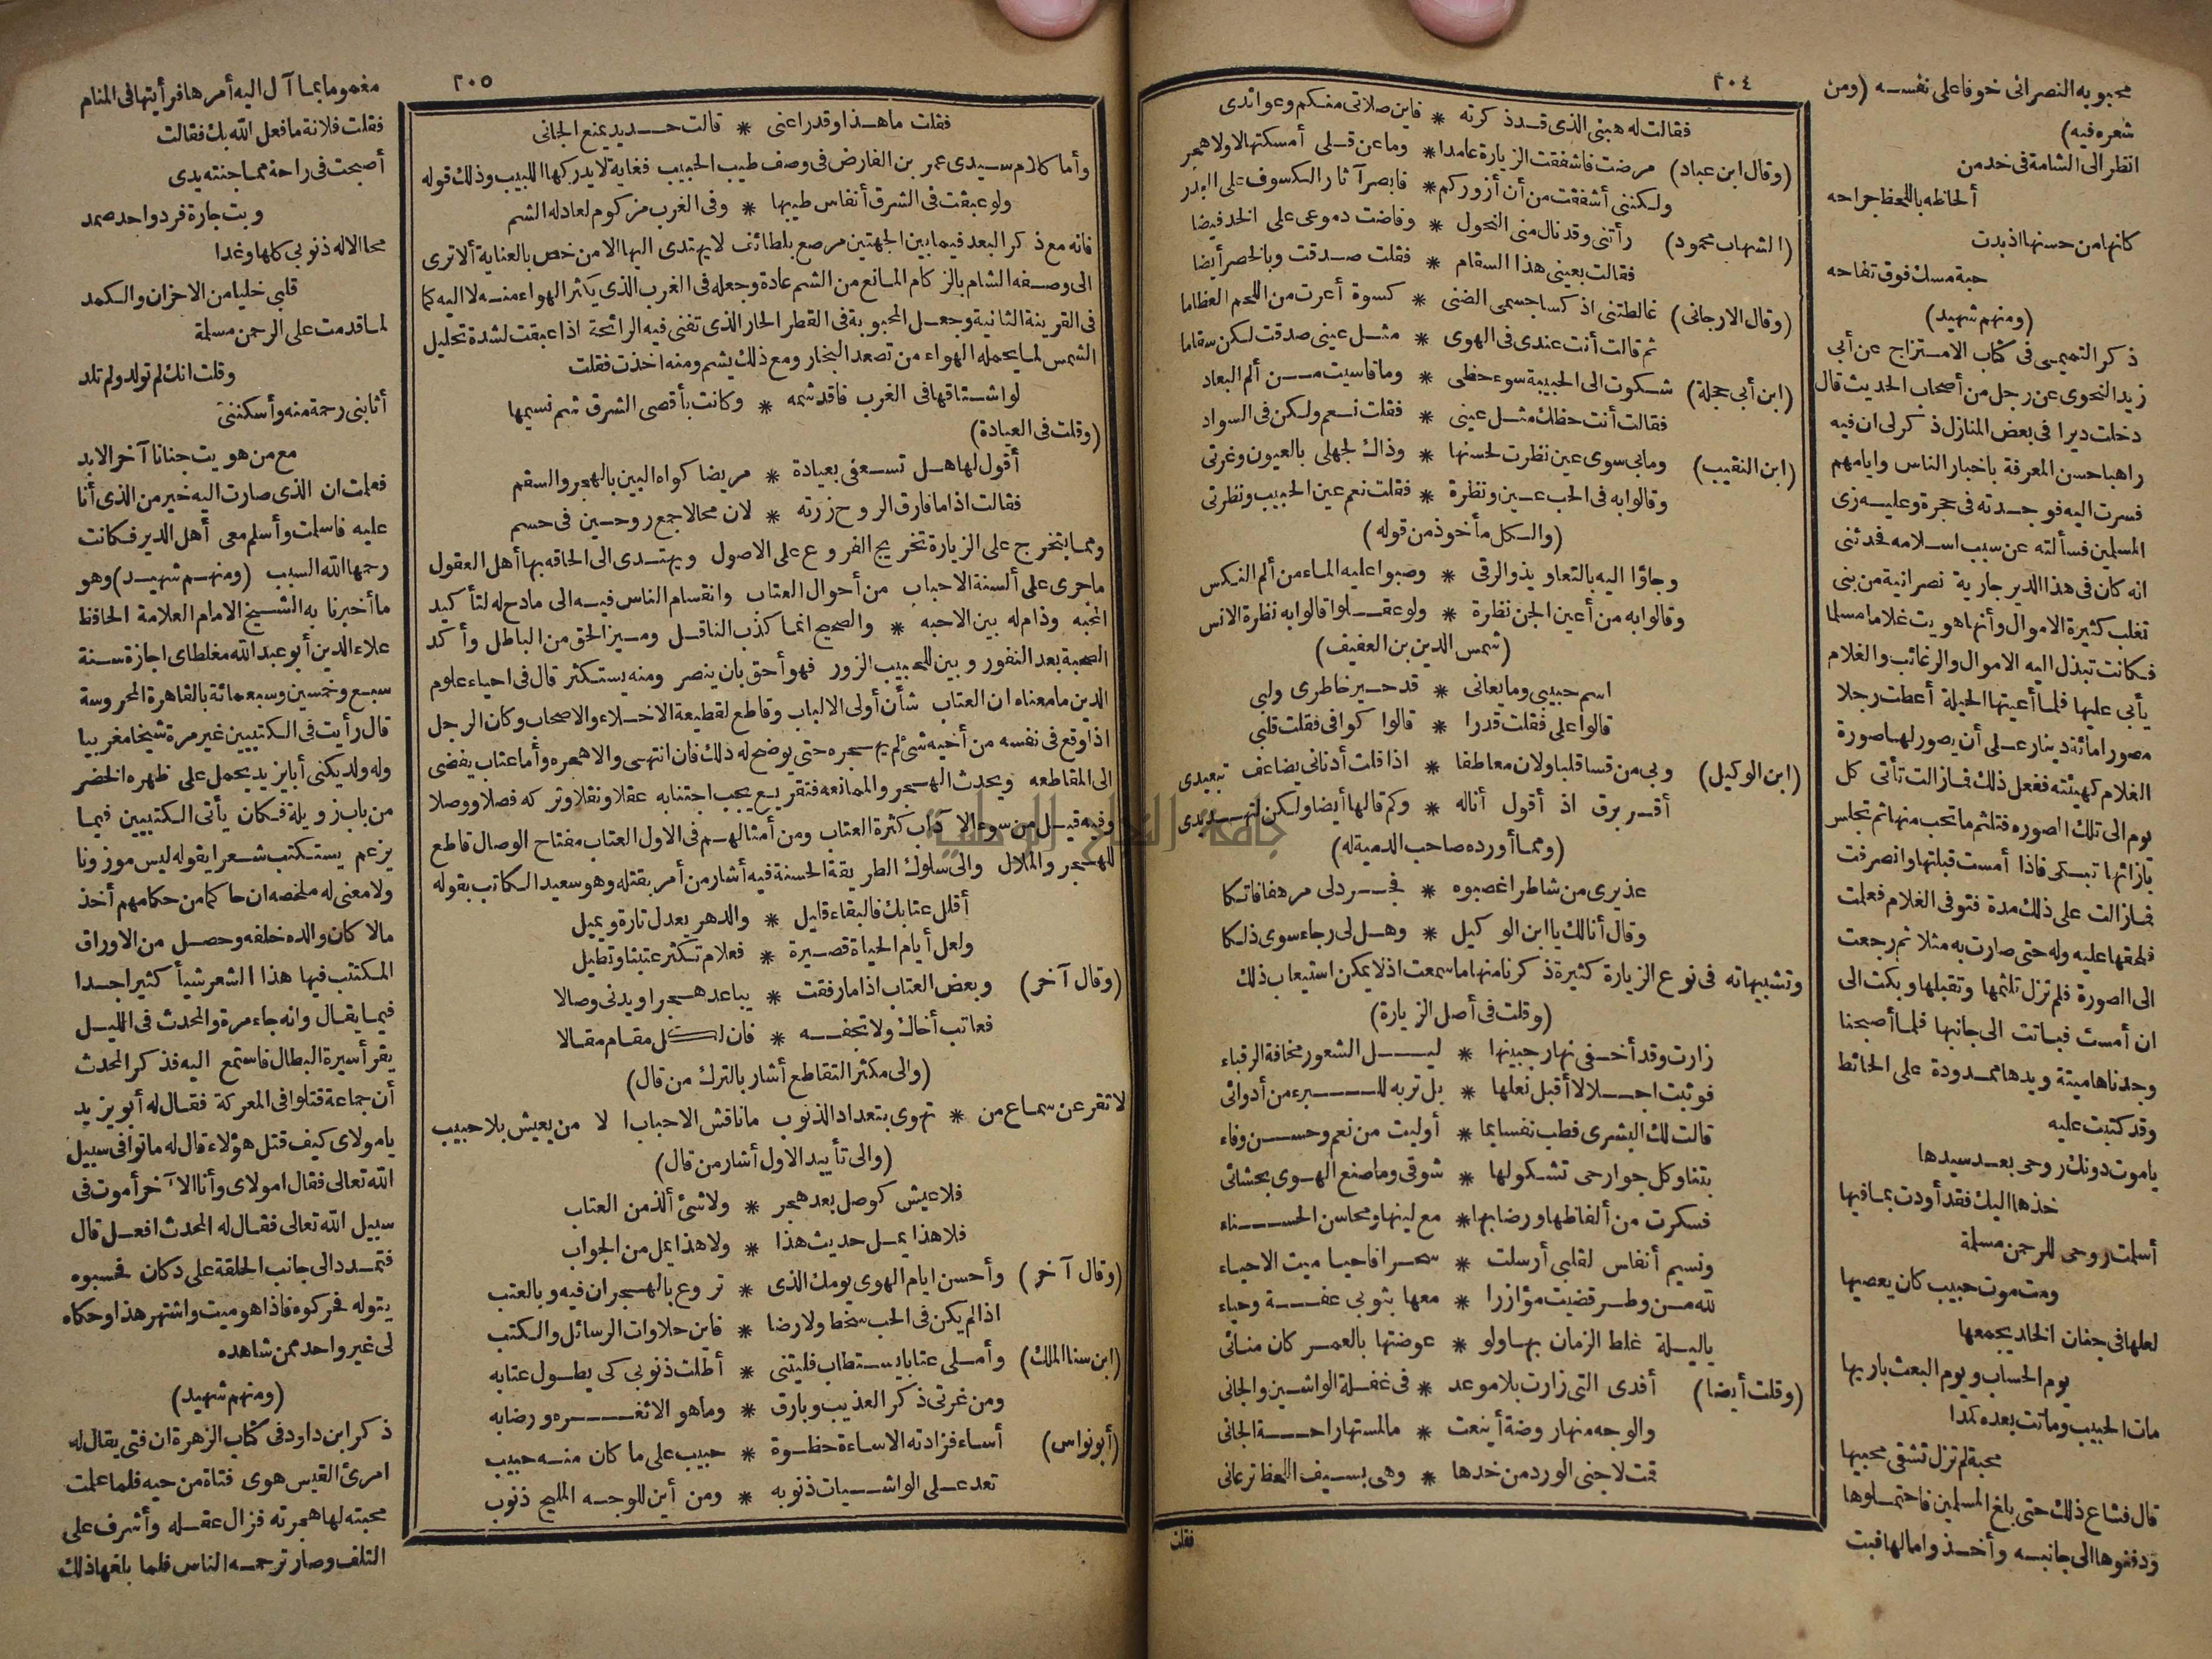 ٢٠٤
فقالت له هبني الذي قد ذكرته * فاين صلاتي منكم وعوائدى
(وقال ابن عباد) مرضت فاشفقت الزيارة عامدا * وما عن قلى أمسكتها لا ولا هجر
ولكنني أشفقت من أن أزوركم * فابصر آثار الكسوف على البدر
(الشهاب محمود) رأتنى وقد نال منى النحول * وفاضت دموعى على الخد فيضا
فقالت بعينى هذا السقام * فقلت صدقت وبالخصر أيضا
(وقال الارجانى) غالطتنى اذ كسا جسمى الضنى * كسوة أعرت من اللحم العظاما
ثم قالت أنت عندى فى الهوى * مثل عينى صدقت لكن سقاما
(ابن أبى حجلة) شكوت الى الحبيبة سوء حظى * وما قاسيت من ألم البعاد
فقالت أنت حظك مثل عينى * فقلت نعم ولكن فى السواد
(ابن النقيب) وما بى سوى عين نظرت لحسنها * وذاك لجهلى بالعيون وغرتى
وقالوا به فى الحب عين ونظرة * فقلت نعم عين الحبيب ونظرتى
(والكل مأخوذ من قوله)
وجاؤا اليه بالتعاويذ والرقى * وصبوا عليه الماء من ألم النكس
وقالوا به من أعين الجن نظرة * ولو عقلوا قالوا به نظرة الانس
(شمس الدين بن العفيف)
اسم حبيبى وما يعانى * قد حير خاطرى ولبى
قالوا على فقلت قدرا * قالوا كوافى فقلت قلبى
(ابن الوكيل) وبى من قسا قلبا ولان معاطفا * اذا قلت أدنانى يضاعف تبعيدى
أقر برق اذ أقول أناله * وكم قالها أيضا ولكن لتهديدى
(ومما أورده صاحب الدمية له)
عذيرى من شاطر أغصبوه * فجرد لى مرهفا فاتكا
وقال أنا لك يا ابن الوكيل * وهل لى رجاء سوى ذلكا
وتشبيهاته فى نوع الزيارة كثيرة ذكرنا منها ما سمعت اذ لا يمكن استيعاب ذلك
(وقلت فى أصل الزيارة)
زارت وقد أخفى نهار جبينها * ليل الشعور مخافة الرقباء
فوثبت اجلالا أقبل نعلها * بل تربه للبرء من أدوائى
قالت لك البشرى فطب نفسا بما * أوليت من نعم وحسن وفاء
بتنا وكل جوارحى تشكو لها * شوقى وما صنع الهوى بحشائى
فسكرت من ألفاظها ورضابها * مع لينها ومحاسن الحسناء
ونسيم أنفاس لقلبى أرسلت * سحرا فاحيا ميت الاحياء
لله من وطر قضيت مؤازرا * معها بثوبى عفة وحياء
يا ليلة غلط الزمان بها ولو * عوضتها بالعمر كان منائى
(وقلت أيضا) أفدى التى زارت بلا موعد * فى غفلة الواشين والجانى
والوجه منها روضة أينعت * ما لمستهاراحة الجانى
قمت لاجنى الورد من خدها * وهى بسيف اللحظ ترعانى
فقلت
محبوبه النصرانى خوفا على نفسه (ومن
شعره فيه)
انظر الى الشامة فى خد من
ألحاظه باللحظ جراحه
كانها من حسنها اذ بدت
حبة مسك فوق تفاحه
(ومنهم شهيد)
ذكر التميمى فى كتاب الامتزاج عن أبى
زيد النحوى عن رجل من أصحاب الحديث قال
دخلت ديرا فى بعض المنازل ذكر لى ان فيه
راهبا حسن المعرفة باخبار الناس وايامهم
فسرت اليه فوجدته فى حجرة وعليه زى
المسلمين فسألته عن سبب اسلامه فحدثنى
انه كان فى هذا الدير جارية نصرانية من بنى
تغلب كثيرة الاموال وأنها هويت غلاما مسلما
فكانت تبذل اليه الاموال والرغائب والغلام
يأبى عليها فلما أعيتها الحيلة أعطت رجلا
مصورا مائة دينار على أن يصور لها صورة
الغلام كهيئته ففعل ذلك فما زالت تأتى كل
يوم الى تلك الصوره فتلثم ما تحب منها ثم تجلس
بازائها تبكى فاذا أمست قبلتها وانصرفت
فما زالت على ذلك مدة فتوفى الغلام فعملت
فلحقها عليه وله حتى صارت به مثلا ثم رجعت
الى الصورة فلم تزل تلثمها وتقبلها وبكت الى
ان أمست فباتت الى جانبها فلما أصبحنا
وجدناها ميتة ويدها ممدودة على الحائط
وقد كتبت عليه
ياموت دونك روحى بعد سيدها
خذها اليك فقد أودت بما فيها
أسلمت روحى للرحمن مسلمة
ومت موت حبيب كان يعصيها
لعلها فى جنان الخلد يجمعها
يوم الحساب ويوم البعث باريها
مات الحبيب وماتت بعده كمدا
محبة لم تزل تشقى محبيها
قال فشاع ذلك حتى بلغ المسلمين فاحتملوها
ودفنوها الى جانبه وأخذوا مالها فبت
٢٠٥
فقلت ما هذا وقد راعنى * قالت حديد يمنع الجانى
وأما كلام سيدى عمر بن الفارض فى وصف طيب الحبيب فغاية لا يدركها اللبيب وذلك قوله
ولو عبقت فى الشرق أنفاس طيبها * وفى الغرب مزكوم لعاد له الشم
فانه مع ذكر البعد فيما بين الجهتين مرصع بلطائف لا يهتدى اليها الا من خص بالعناية ألا ترى
الى وصفه الشام بالزكام المانع من الشم عادة وجعله فى الغرب الذى يكثر الهواء منه لا اليه كما
فى القرينة الثانية وجعل المحبوبة فى القطر الحار الذى تفنى فيه الرائحة اذا عبقت لشدة تحليل
الشمس لما يحمله الهواء من تصعد البخار ومع ذلك يشم ومنه اخذت فقلت
لو اشتاقها فى الغرب فاقد شمه * وكانت بأقصى الشرق شم نسيمها
(وقلت فى العيادة)
أقول لها هل تسعفى بعيادة * مريضا كواه البين بالهجر والسقم
فقالت اذا ما فارق الروح زرته * لان محالا جمع روحين فى جسم
ومما يتخرج على الزيارة تخريج الفروع على الاصول ويهتدى الى الحاقه بها أهل العقول
ما جرى على ألسنة الاحباب من أحوال العتاب وانقسام الناس فيه الى مادح له لتأكيد
المحبه وذام له بين الاحبه * والصحيح انما كذب الناقل وميز الحق من الباطل وأكد
الصحبة بعد النفور وبين للحبيب الزور فهو أحق بان ينصر ومنه يستكثر قال فى احياء علوم
الدين ما معناه ان العتاب شأن أولى الالباب وقاطع لقطيعة الاخلاء والاصحاب وكان الرجل
اذا وقع فى نفسه من أخيه شئ لم يهجره حتى يوضح له ذلك فان انتهى والا هجره وأما عتاب يفضى
الى المقاطعه ويحدث الهجر والممانعه فتقريع يجب اجتنابه عقلا ونقلا وتركه فصلا ووصلا
وفيه قيل من سوء الآداب كثرة العتاب ومن أمثالهم فى الاول العتاب مفتاح الوصال قاطع
للهجر والملال والى سلوك الطريقة الحسنة فيه أشار من أمر بقتله وهو سعيد الكاتب بقوله
أقلل عتابك فالبقاء قليل * والدهر يعدل تارة ويميل
ولعل أيام الحياة قصيرة * فعلام تكثر عتبنا وتطيل
(وقال آخر) وبعض العتاب اذا ما رفقت * يباعد هجرا ويدنى وصالا
فعاتب أخاك ولا تجفه * فان لكل مقام مقالا
(والى مكثر التقاطع أشار بالترك من قال)
لا تقر عن سماع من * تهوى بتعداد الذنوب ما ناقش الاحباب الا من يعيش بلا حبيب
(والى تأييد الاول أشار من قال)
فلا عيش كوصل بعد هجر * ولا شئ ألذ من العتاب
فلا هذا يمل حديث هذا * ولا هذا يمل من الجواب
(وقال آخر) وأحسن ايام الهوى يومك الذى * تروع بالهجران فيه وبالعتب
اذا لم يكن فى الحب سخط ولا رضا * فاين حلاوات الرسائل والكتب
(ابن سنا الملك) وأملى عتابا يستطاب فليتنى * أطلت ذنوبى كى يطول عتابه
ومن غرتى ذكر العذيب وبارق * وما هو الا ثغره ورضابه
(أبو نواس) أساء فزادته الاساءة حظوة * حبيب على ما كان منه حبيب
تعد على الواشيات ذنوبه * ومن أين للوجه المليح ذنوب
مغموما بما آل اليه أمرها فرأيتها فى المنام
فقلت فلانة ما فعل الله بك فقالت
أصبحت فى راحة مما جنته يدى
وبت جارة فرد واحد صمد
محا الاله ذنوبى كلها وغدا
قلبى خليا من الاحزان والكمد
لما قدمت على الرحمن مسلمة
وقلت انك لم تولد ولم تلد
أثابنى رحمة منه وأسكننى
مع من هويت جنانا آخر الابد
فعلمت ان الذى صارت اليه خير من الذى أنا
عليه فاسلمت وأسلم معى أهل الدير فكانت
رحمها الله السبب (ومنهم شهيد) وهو
ما أخبرنا به الشيخ الامام العلامة الحافظ
علاء الدين أبو عبد الله مغلطاى اجازة سنة
سبع وخمسين وسبعمائة بالقاهرة المحروسة
قال رأيت فى الكتبيين غير مرة شيخا مغربيا
وله ولد يكنى أبا يزيد يحمل على ظهره الخضر
من باب زويلة فكان يأتى الكتبيين فيما
يزعم يستكتب شعرا يقوله ليس موزونا
ولا معنى له ملخصه ان حاكما من حكامهم أخذ
مالا كان والده خلفه وحصل من الاوراق
المكتتب فيها هذا الشعر شيأ كثيرا جدا
فيما يقال وانه جاء مرة والمحدث فى الليل
يقرأ سيرة البطال فاستمع اليه فذكر المحدث
أن جماعة قتلوا فى المعركة فقال له أبو يزيد
يا مولاى كيف قتل هؤلاء قال له ماتوا فى سبيل
الله تعالى فقال امولاى وأنا الآخر أموت فى
سبيل الله تعالى فقال له المحدث افعل قال
فتمدد الى جانب الحلقة على دكان فحسبوه
يتوله فحركوه فاذا هو ميت واشتهر هذا وحكاه
لى غير واحد ممن شاهده
(ومنهم شهيد)
ذكر ابن داود فى كتاب الزهرة ان فتى يقال له
امرئ القيس هوى فتاة من حيه فلما علمت
محبته لها هجرته فزال عقله وأشرف على
التلف وصار ترحمه الناس فلما بلغها ذلك
جامعة النجاح الوطنية